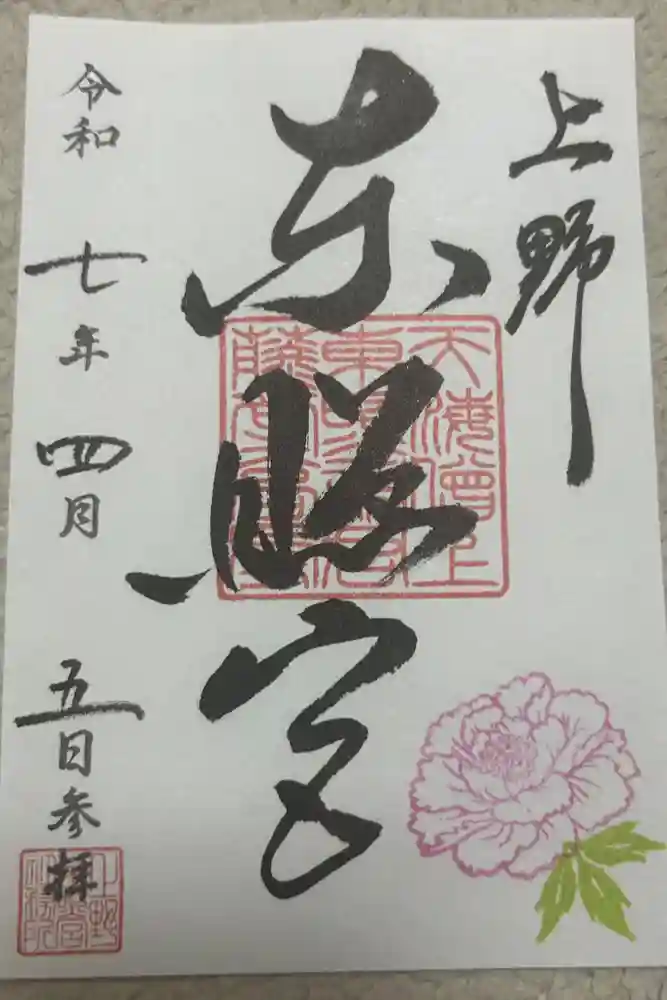 上野
東照宮
天海僧正
東照宮
藤堂高虎
令和 七年 四月 五日参拝
上野
東照宮
社務所